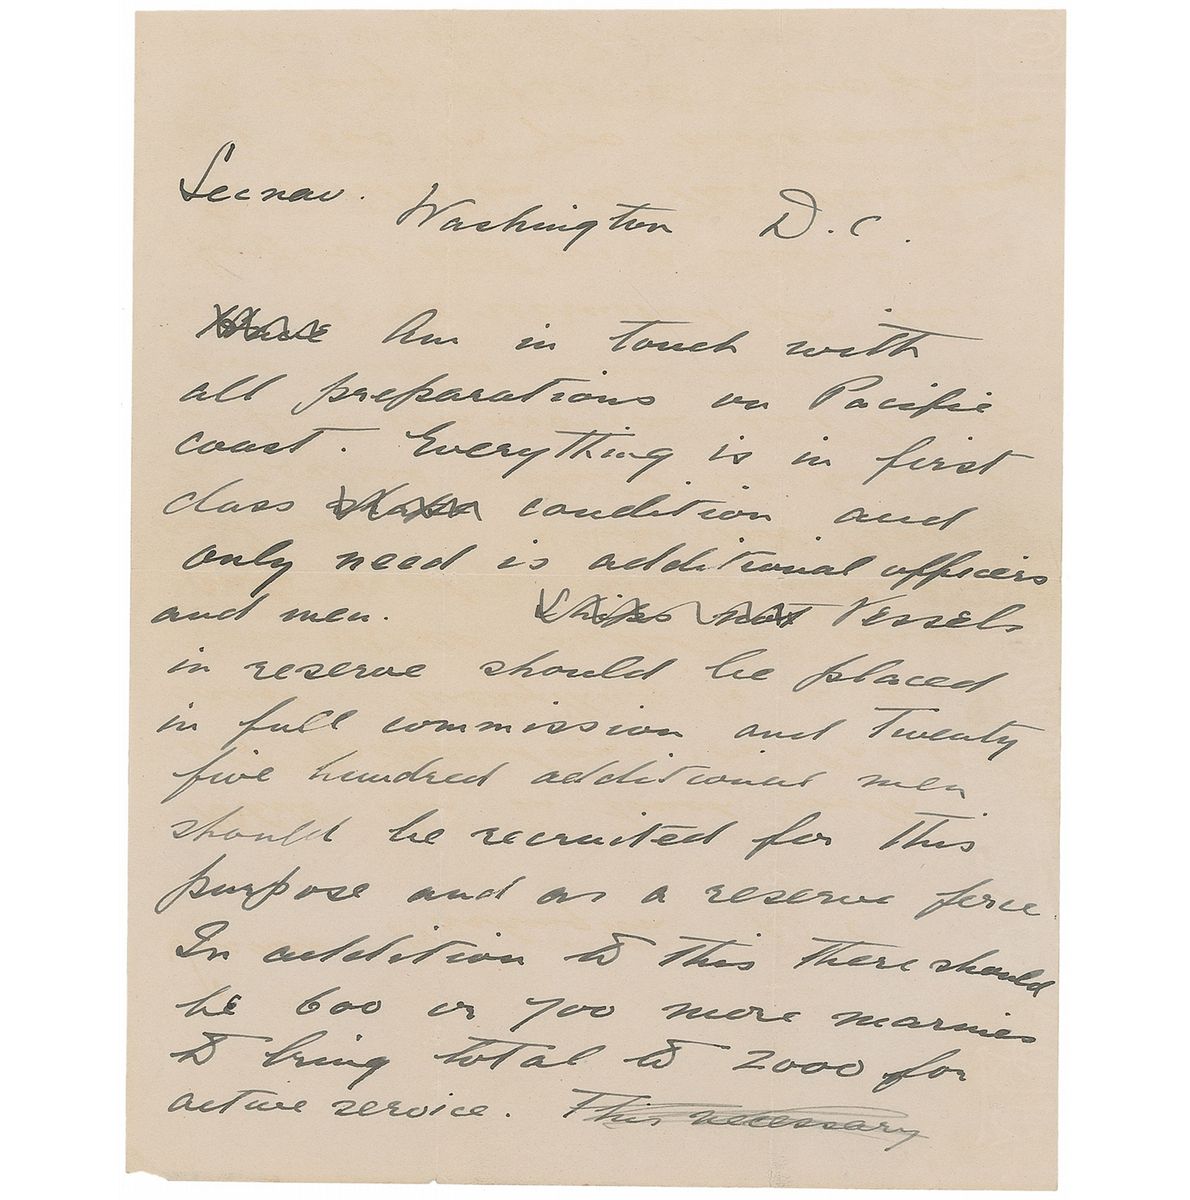 Secnav.
Washington D.C.
Have Am in touch with
all preparations on Pacific
coast. Everything is in first
class shape condition and
only need is additional officers
and men. Ships not Vessels
in reserve should be placed
in full commission and twenty
five hundred additional men
should be recruited for this
purpose and as a reserve force
In addition to this there should
be 600 or 700 more marines
to bring total to 2000 for
active service. This necessary